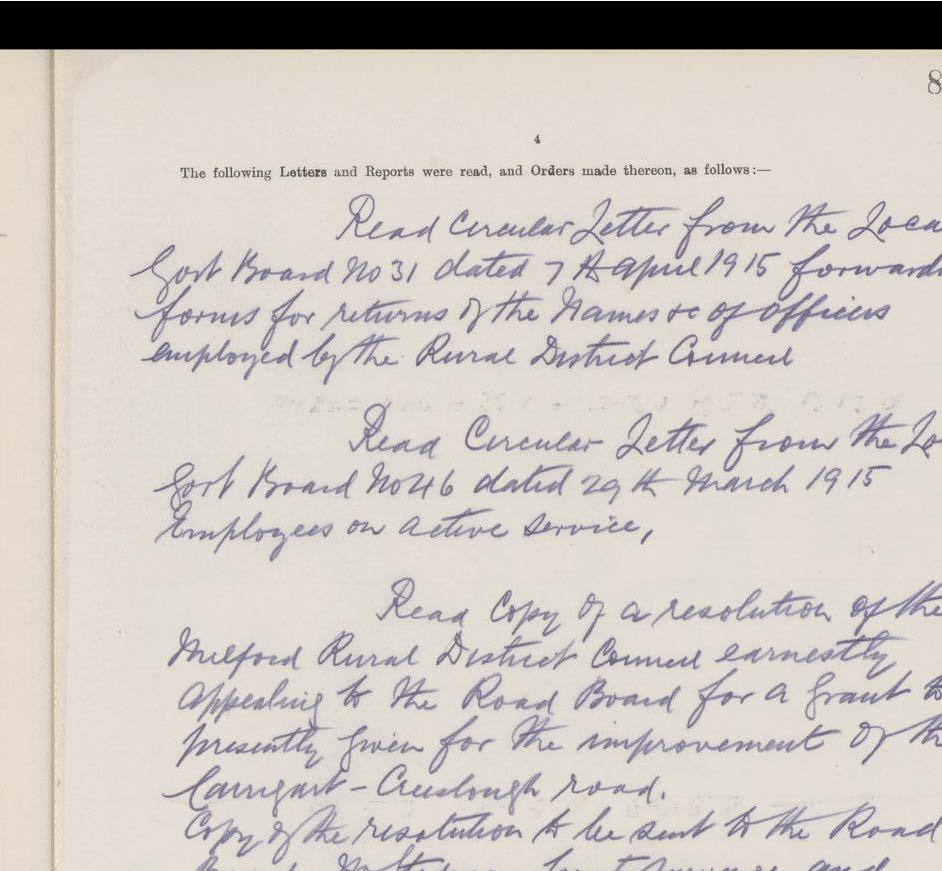 8
4
The following Letters and Reports were read, and Orders made thereon, as follows:—
Read Circular Letter from the Loca
Govt Board No 31 dated 7th April 1915 forward
forms for returns of the Names &c of officers
employed by the Rural District Council
Read Circular Letter from the Lo
Govt Board No 46 dated 29th March 1915
Employees on active service,
Read Copy of a resolution of the
Milford Rural District Council earnestly
appealing to the Road Board for a grant to
presently given for the improvement of th
Carrigart - Creeslough road.
Copy of the resolution to be sent to the Road
and